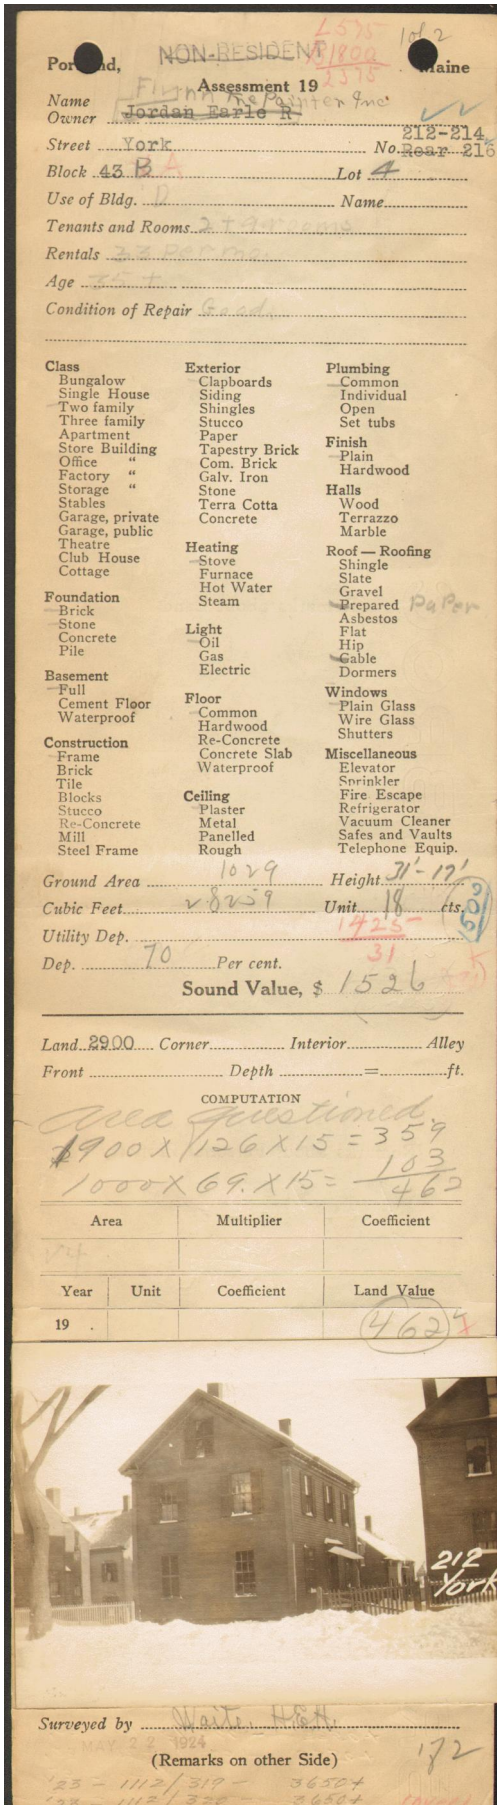 L 575
1 of 2
NON-RESIDENT
B1800
2375
Portland, Maine
Assessment 19
Name
Flynn The Painter Inc.
Owner Jordan Earle R
212-214
Street York No. Rear 216
Block 43 B A Lot 4
Use of Bldg. D Name
Tenants and Rooms 2 + 9 rooms
Rentals 33 per mo.
Age 35 +
Condition of Repair Good
Class
Bungalow
Single House
Two family
Three family
Apartment
Store Building
Office "
Factory "
Storage "
Stables
Garage, private
Garage, public
Theatre
Club House
Cottage
Foundation
Brick
Stone
Concrete
Pile
Basement
Full
Cement Floor
Waterproof
Construction
Frame
Brick
Tile
Blocks
Stucco
Re-Concrete
Mill
Steel Frame
Exterior
Clapboards
Siding
Shingles
Stucco
Paper
Tapestry Brick
Com. Brick
Galv. Iron
Stone
Terra Cotta
Concrete
Heating
Stove
Furnace
Hot Water
Steam
Light
Oil
Gas
Electric
Floor
Common
Hardwood
Re-Concrete
Concrete Slab
Waterproof
Ceiling
Plaster
Metal
Panelled
Rough
Plumbing
Common
Individual
Open
Set tubs
Finish
Plain
Hardwood
Halls
Wood
Terrazzo
Marble
Roof — Roofing
Shingle
Slate
Gravel
Prepared Paper
Asbestos
Flat
Hip
Gable
Dormers
Windows
Plain Glass
Wire Glass
Shutters
Miscellaneous
Elevator
Sprinkler
Fire Escape
Refrigerator
Vacuum Cleaner
Safes and Vaults
Telephone Equip.
Ground Area 1029 Height 31'-17'
Cubic Feet 28259 Unit 18 cts.
1425
Utility Dep.
31
Dep. 70 Per cent.
Sound Value, $ 1526
Land 2900 Corner Interior Alley
Front Depth = ft.
COMPUTATION
Area Questioned
1900 X 126 X 15 = 359
1000 X 69. X 15 = 103
462
Area Multiplier Coefficient
Year Unit Coefficient Land Value
19 . 462
212
York
Surveyed by Waite, H.E.H.
MAY 22 1924
182
(Remarks on other Side)
'23 - 1112/319 - 3650+
'23 - 1112/320 - 3650+